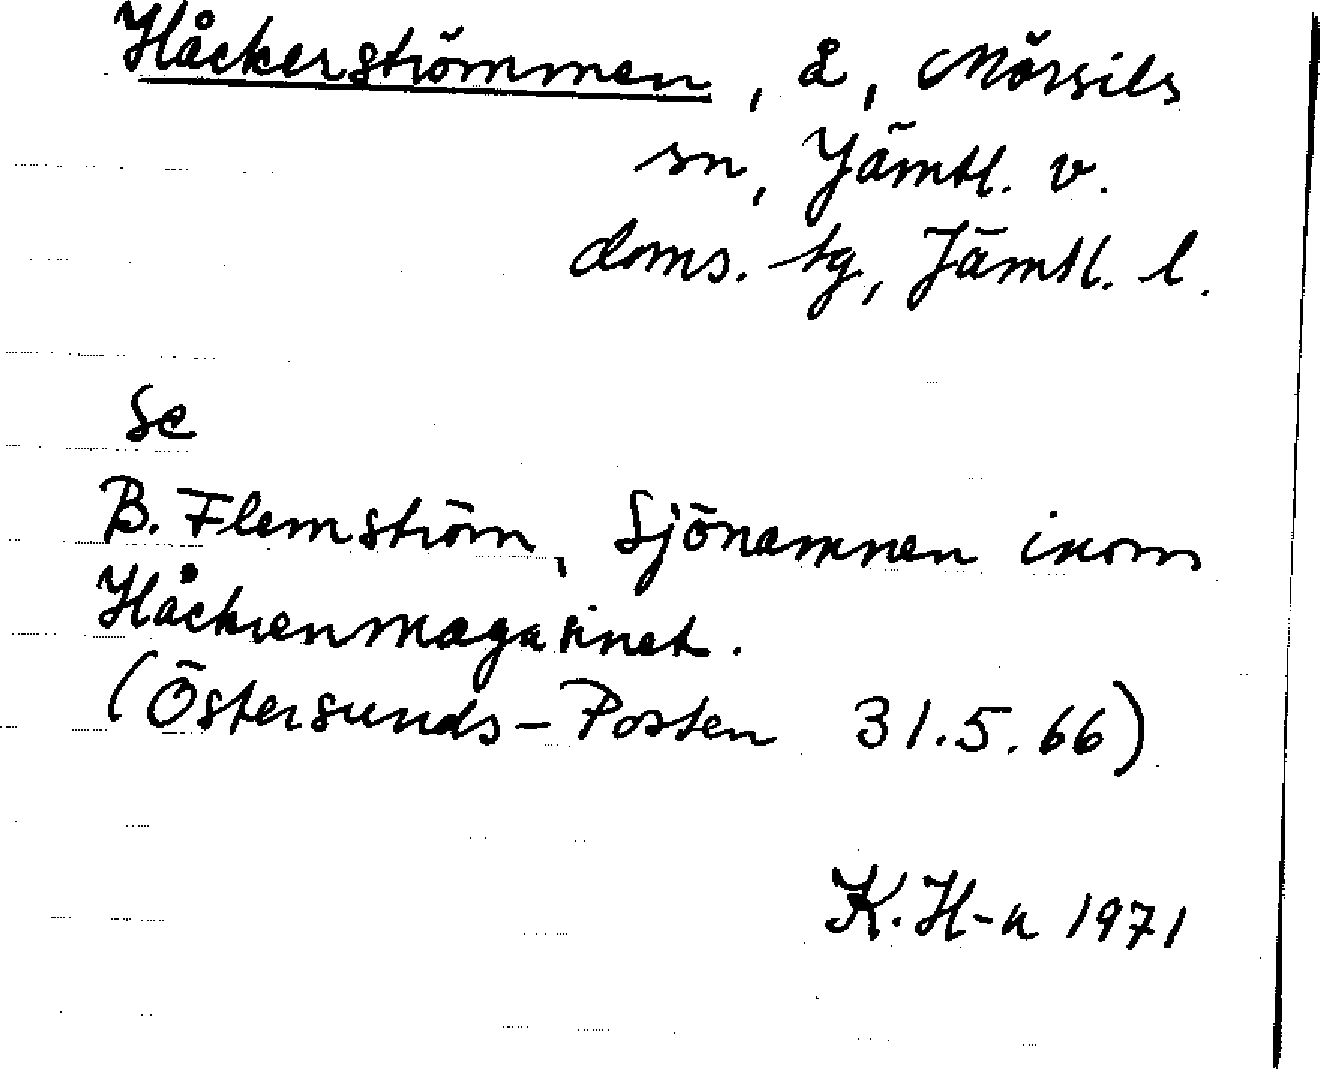 Håckerströmmen, å, Mörsils
sn, Jämtl. v.
doms. tg, Jämtl. l.
Se
B. Flemström, Sjönamnen inom
Håckrenmagasinet.
(Östersunds-Posten 31.5.66)
K. H-n 1971